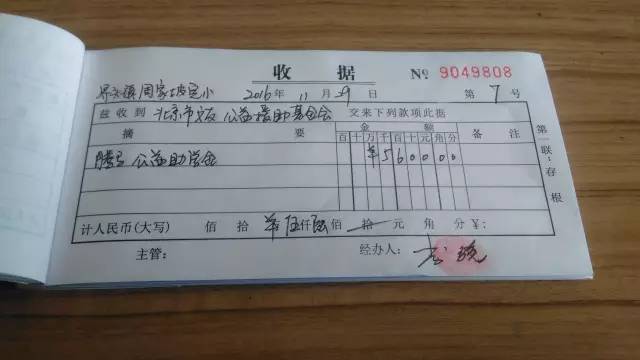 收 据 № 9049808
周家坡完小 2016年 11月 29日 第 7 号
兹收到 北京市 公益援助基金会 交来下列款项此据
摘 要 金 额 备 注
百十万千百十元角分
公益助学金 ¥560000
计人民币(大写) 佰 拾 伍仟陆佰 拾 元 角 分 ¥:
主管: 经办人:
第一联:存根